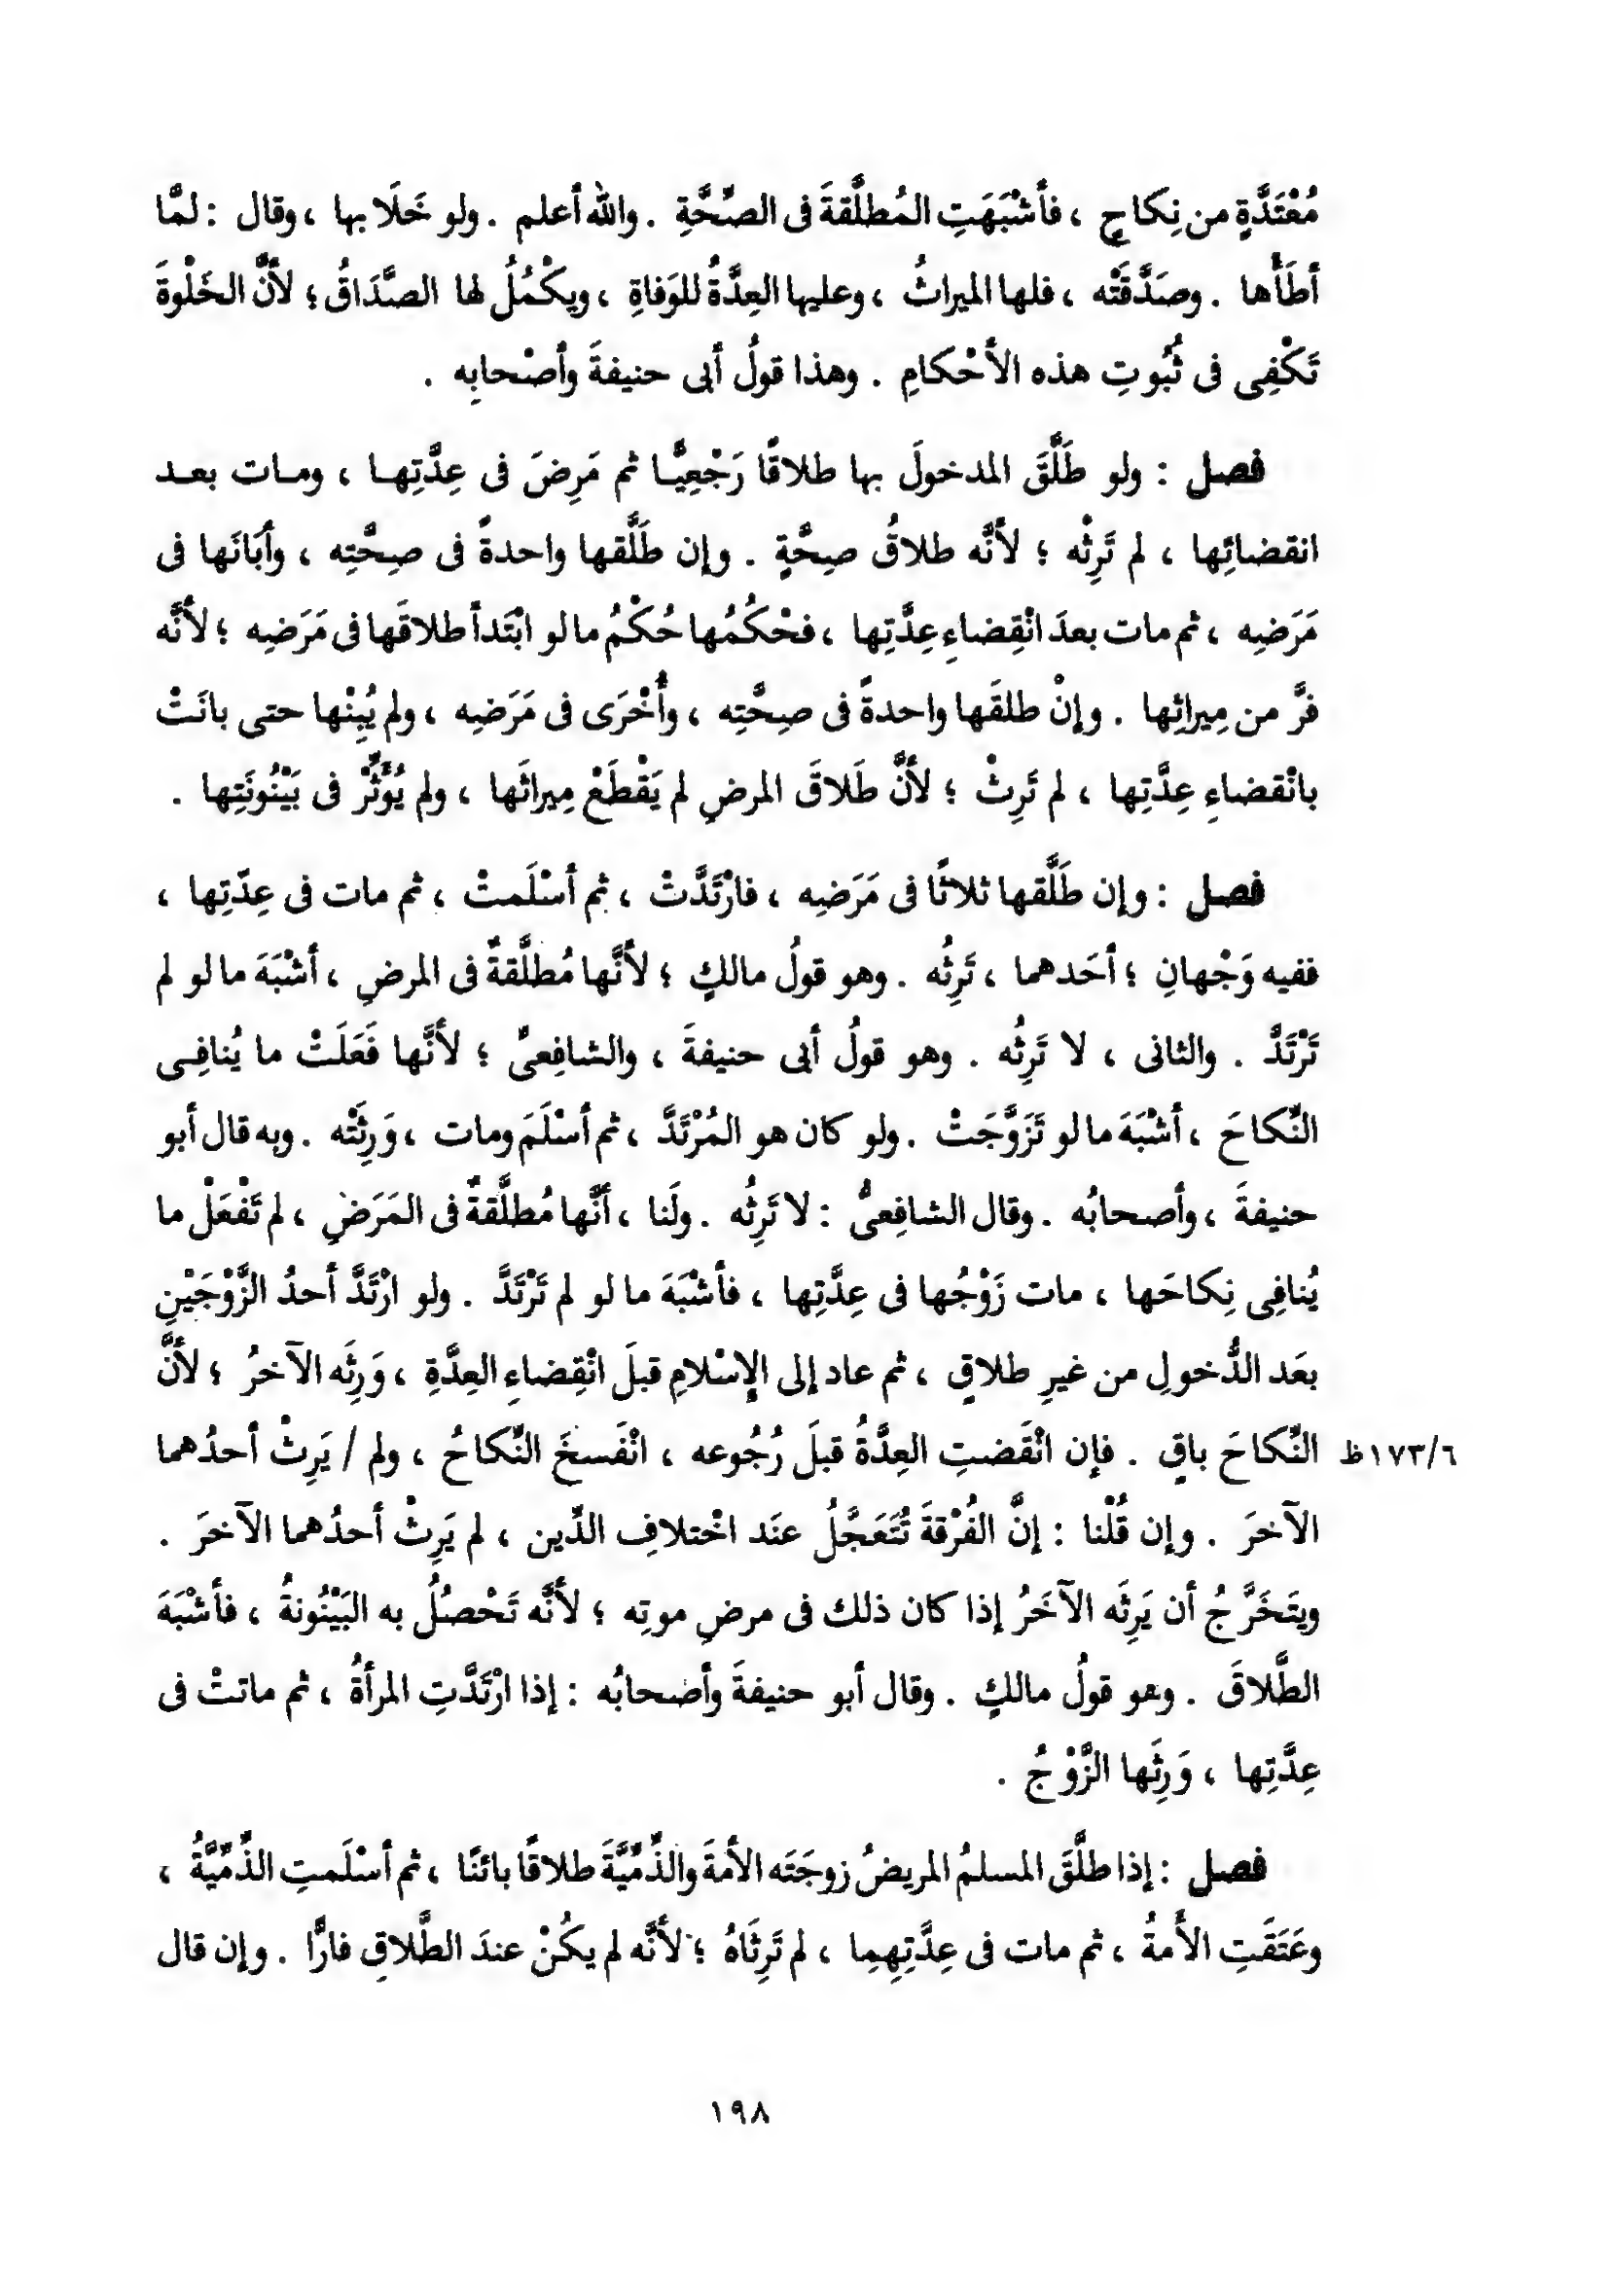 مُعْتَدَّةٍ من نِكاحٍ ، فأشْبَهَتِ المُطلَّقةَ فى الصِّحَّةِ . والله أعلم . ولو خَلَا بها ، وقال : لمَّا
أطَأْها . وصَدَّقَتْه ، فلها الميراثُ ، وعليها العِدَّةُ للوَفاةِ ، ويكْمُلُ لها الصَّدَاقُ ؛ لأنَّ الخَلْوةَ
تَكْفِى فى ثُبُوتِ هذه الأحْكامِ . وهذا قولُ أبى حنيفةَ وأصْحابِه .
فصل : ولو طَلَّقَ المدخولَ بها طلاقًا رَجْعِيًّا ثم مَرِضَ فى عِدَّتِها ، ومات بعد
انقضائِها ، لم تَرِثْه ؛ لأنَّه طلاقُ صِحَّةٍ . وإن طَلَّقها واحدةً فى صِحَّتِه ، وأبَانَها فى
مَرَضِه ، ثم مات بعدَ انْقِضاءِ عِدَّتِها ، فحْكُمُها حُكْمُ ما لو ابْتَدأ طلاقَها فى مَرَضِه ؛ لأنَّه
فرَّ من مِيراثِها . وإنْ طلقَها واحدةً فى صِحَّتِه ، وأُخْرَى فى مَرَضِه ، ولم يُبِنْها حتى بانَتْ
بانْقضاءِ عِدَّتِها ، لم تَرِثْ ؛ لأنَّ طَلاقَ المرضِ لم يَقْطَعْ مِيراثَها ، ولم يُؤَثِّرْ فى بَيْنُونَتِها .
فصل : وإن طَلَّقها ثلاثًا فى مَرَضِه ، فارْتَدَّتْ ، ثم أسْلَمتْ ، ثم مات فى عِدّتِها ،
ففيه وَجْهانِ ؛ أحَدهما ، تَرِثُه . وهو قولُ مالكٍ ؛ لأنَّها مُطلَّقةٌ فى المرضِ ، أشْبَهَ ما لو لم
تَرْتَدَّ . والثانى ، لا تَرِثُه . وهو قولُ أبى حنيفةَ ، والشافِعىِّ ؛ لأنَّها فَعَلَتْ ما يُنافِى
النِّكاحَ ، أشْبَهَ ما لو تَزَوَّجَتْ . ولو كان هو المُرْتَدَّ ، ثم أسْلَمَ ومات ، وَرِثَتْه . وبه قال أبو
حنيفةَ ، وأصحابُه . وقال الشافِعىُّ : لا تَرِثُه . ولَنا ، أنَّها مُطلَّقةٌ فى المَرَضِ ، لم تَفْعَلْ ما
يُنافِى نِكاحَها ، مات زَوْجُها فى عِدَّتِها ، فأشْبَهَ ما لو لم تَرْتَدَّ . ولو ارْتَدَّ أحدُ الزَّوْجَيْنِ
بعَد الدُّخولِ من غيرِ طلاقٍ ، ثم عاد إلى الإسْلامِ قبلَ انْقِضاءِ العِدَّةِ ، وَرِثَه الآخرُ ؛ لأنَّ
النِّكاحَ باقٍ . فإن انْقَضتِ العِدَّةُ قبلَ رُجُوعه ، انْفَسخَ النِّكاحُ ، ولم / يَرِثْ أحدُهما ١٧٣/٦ظ
الآخرَ . وإن قُلْنا : إنَّ الفُرْقةَ تُتَعَجَّلُ عنَد اخْتلافِ الدِّين ، لم يَرِثْ أحدُهما الآخرَ .
ويتَخَرَّجُ أن يَرِثَه الآخَرُ إذا كان ذلك فى مرضِ موتِه ؛ لأنَّه تَحْصُلُ به البَيْنُونةُ ، فأشْبَهَ
الطَّلاقَ . وهو قولُ مالكٍ . وقال أبو حنيفةَ وأصْحابُه : إذا ارْتَدَّتِ المرأةُ ، ثم ماتتْ فى
عِدَّتِها ، وَرِثَها الزَّوْجُ .
فصل : إذا طلَّقَ المسلمُ المريضُ زوجَتَه الأمةَ والذِّمِّيَّةَ طلاقًا بائنًا ، ثم أسْلَمتِ الذِّمِّيَّةُ ،
وعَتَقَتِ الأَمةُ ، ثم مات فى عِدَّتِهِما ، لم تَرِثَاهُ ؛ لأنَّه لم يكُنْ عندَ الطَّلاقِ فارًّا . وإن قال
١٩٨